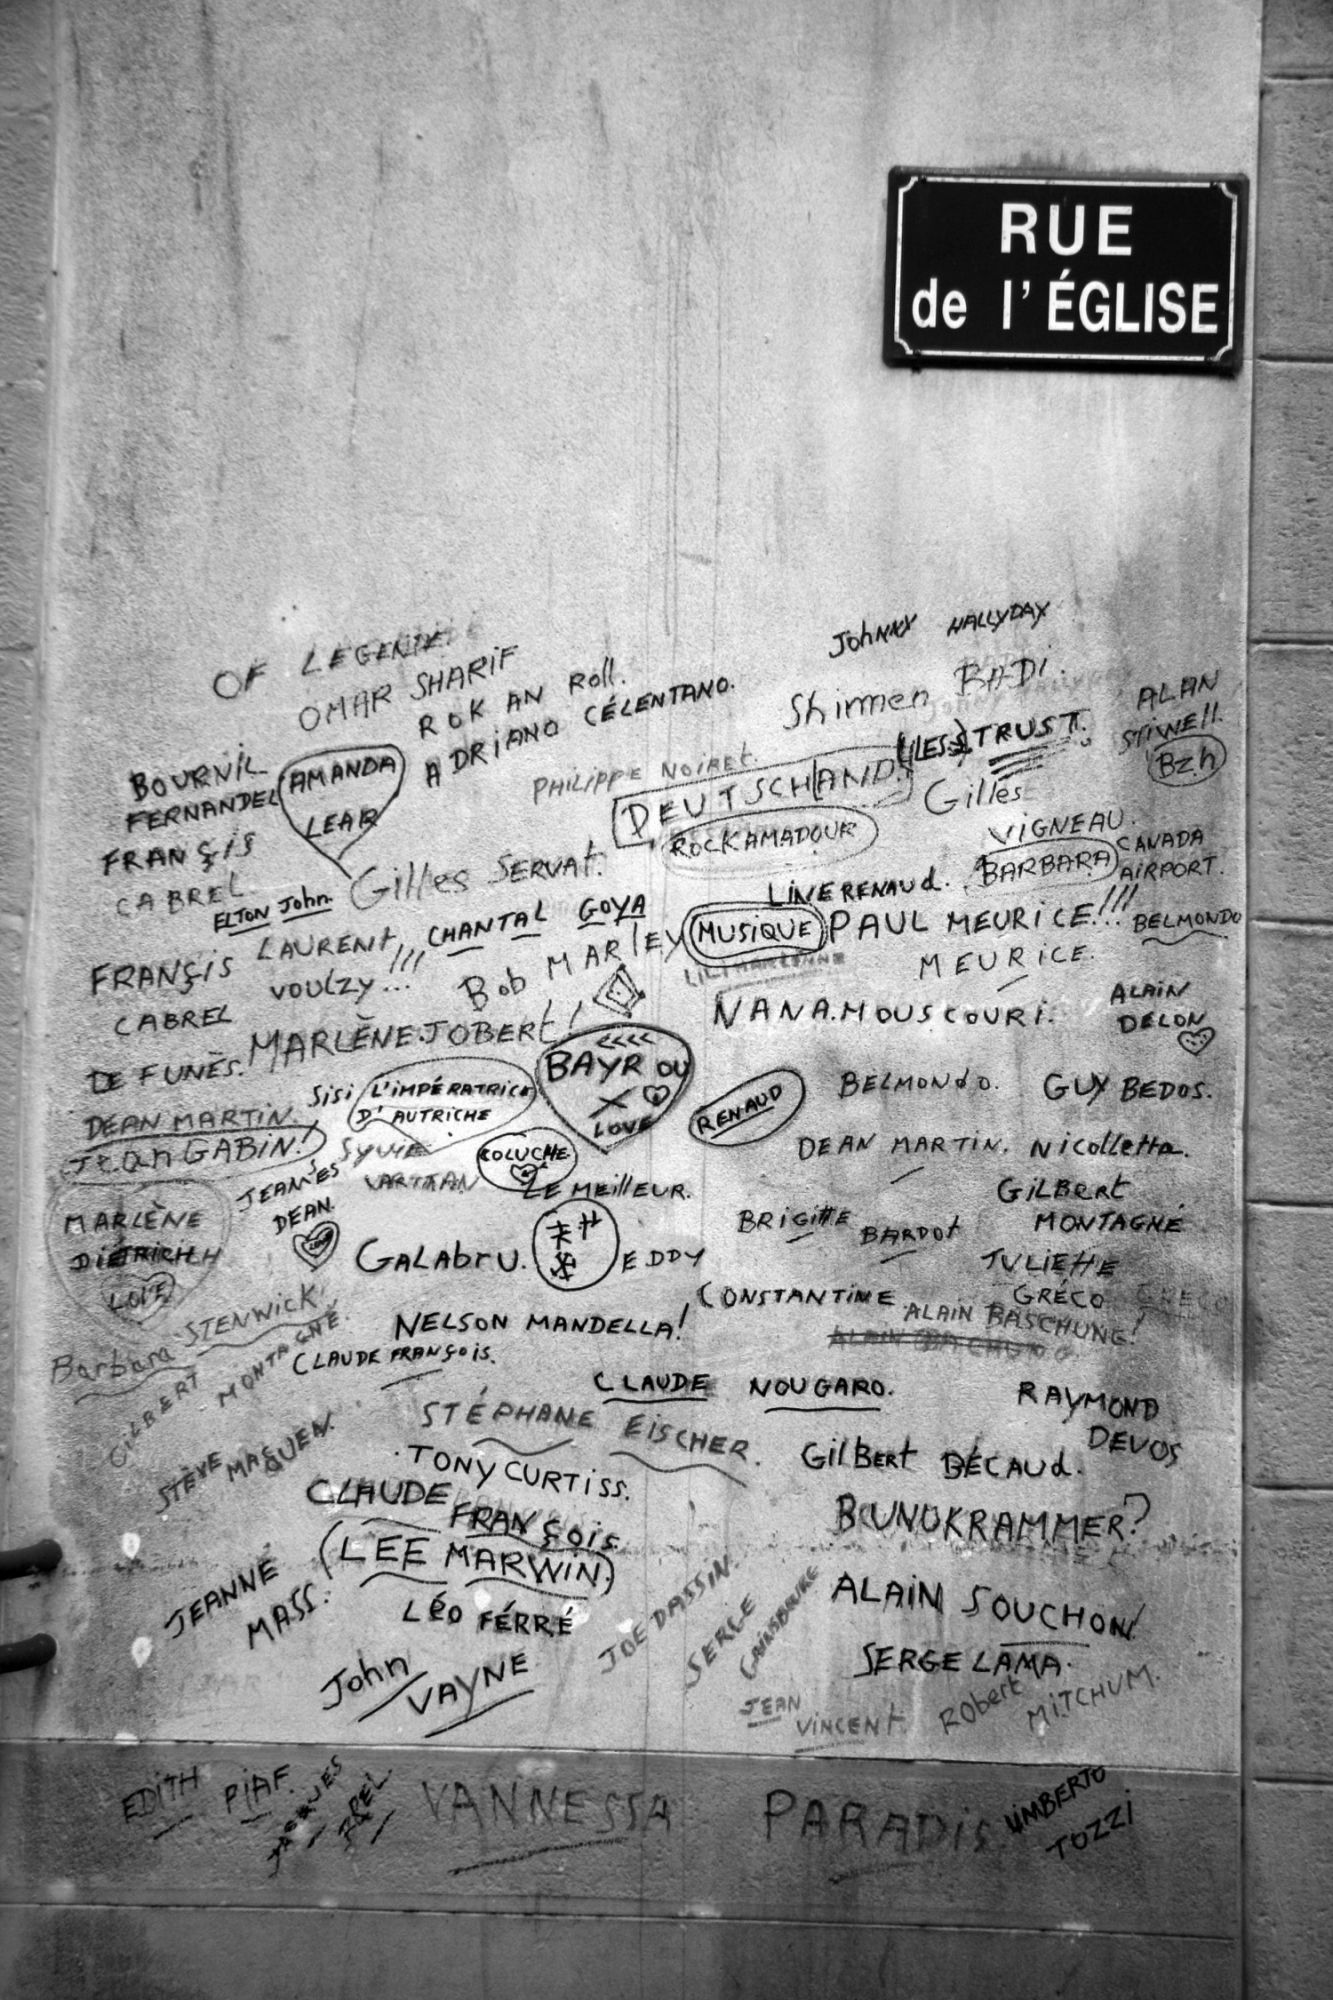 RUE
de l'ÉGLISE
JOhNNY HALLYDAY
OF LEGENDE
OMAR SHARIF
ROK AN Roll.
ADRiANO CÉLENTANO.
Shirmen BADi.
ALAN
STiWEll.
Bzh
BOURViL
FERNANDEL
AMANDA
LEAR
PHiLiPPE NOiRET.
TRUST.
DEUTSCHLAND.
Gilles
ViGNEAU.
ROCKAMADOUR
FRANÇiS
CABREL.
Gilles SERVAT.
BARBARA
CANADA
AiRPORT.
ELTON John.
LiNE RENAUd.
CHANTAL GOYA
MUSiQUE
PAUL MEURiCE!!!
BELMONDO
LAURENt
VOULZY...!!!
FRANÇiS
CABREL
Bob MARlEY
LiLi MARLENNE
MEURiCE.
NANA.MOUSCOURi.
ALAiN
DELON
MARLÈNE.JOBERt!
DE FUNÈS.
BAYROU
LOVE
SiSi L'iMPÉRATRiCE
D'AUTRiCHE
RENAUD
BELMONdO.
GUY BEDOS.
DEAN MARTiN.
Jean GABiN!
SYLViE
VARTTAN
COLUCHE
LE MEillEUR.
DEAN MARTiN.
NiCOlEtta.
JEAMES
DEAN.
LOVE
MARLÈNE
DiETRiCH
LOVE
GiLBERt
MONTAGNÉ
BRiGittE
BARDOt
GALAbRU.
EDDY
CONSTANTiNE
JULiEttE
GRÉCO
GRÉCO
ALAiN BASCHUNG!
Barbara STENWiCK
NELSON MANDELLA!
CLAUDE FRANÇOiS.
GiLBERT MONTAGNÉ.
CLAUDE NOUGARO.
RAYMOND
DEVOS
STÉPHANE EiSCHER.
STÈVE MAQUEN.
TONY CURTiSS.
GilBERt BÉCAUd.
CLAUDE
FRANÇOiS.
BUNUKRAMMER?
(LEE MARWiN)
JEANNE
MASS.
LÉO FÉRRÉ
JOE DASSiN.
SERGE
GAiNSBURE
ALAiN SOUCHON!
SERGE LAMA.
John
VAYNE
JEAN
ViNCENt
RObert MiTCHUM.
EDiTH PiAF.
JACQUES
BREL.
VANNESSA PARADiS
UMBERTO
TOZZi